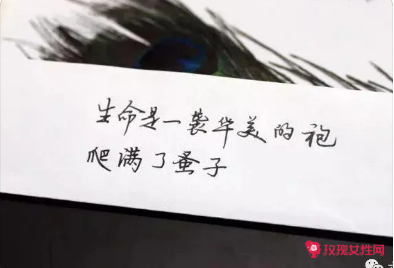 生命是一袭华美的袍
爬满了蚤子
玫瑰女性网